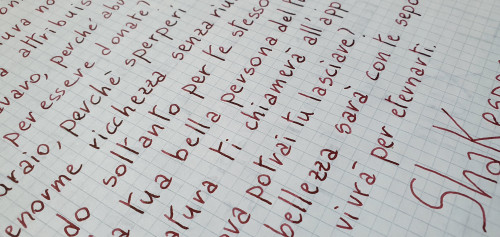 ura no
attribuis
varo, perché abu
per essere donate?
uraio, perché sperperi
enorme ricchezza senza riu
do soltanto per te stesso
a tua bella persona del
atura ti chiamerà all'app
va potrai tu lasciare?
bellezza sarà con te sepo
vivrà per eternarti.
ShaKesp